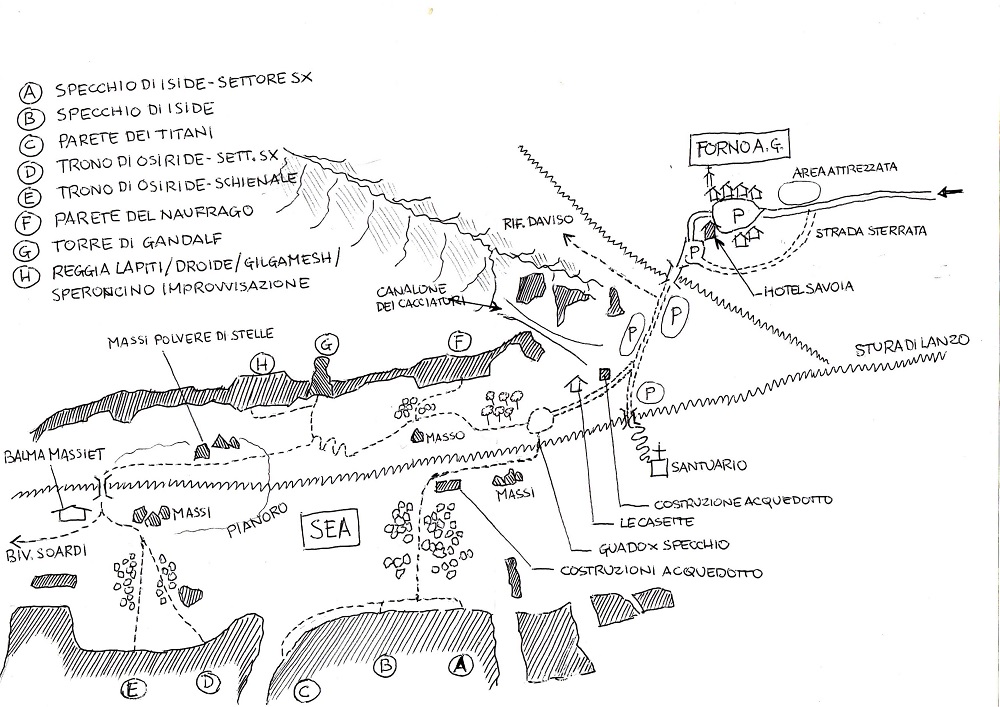 A SPECCHIO DI ISIDE-SETTORE SX
B SPECCHIO DI ISIDE
C PARETE DEI TITANI
D TRONO DI OSIRIDE-SETT. SX
E TRONO DI OSIRIDE-SCHIENALE
F PARETE DEL NAUFRAGO
G TORRE DI GANDALF
H REGGIA LAPITI/DROIDE/GILGAMESH/
SPERONCINO IMPROVVISAZIONE
FORNO A.G.
AREA ATTREZZATA
P
STRADA STERRATA
P
HOTEL SAVOIA
RIF. DAVISO
CANALONE
DEI CACCIATORI
P
P
STURA DI LANZO
MASSI POLVERE DI STELLE
G
F
H
P
MASSO
BALMA MASSIET
SANTUARIO
MASSI
MASSI
PIANORO
SEA
COSTRUZIONE ACQUEDOTTO
LE CASETTE
GUADO X SPECCHIO
COSTRUZIONI ACQUEDOTTO
BIV. SOARDI
E
D
C
B
A